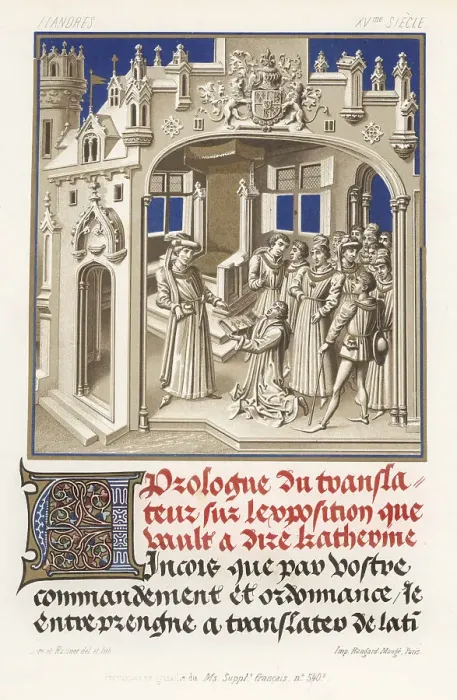 FLANDRES
XVme SIÈCLE
Prologue du transla-
teur sur lexposition que
vault a dire katherine
Aincois que par vostre
commandement et ordonnance, Je
entreprengne a translater de lati
del et lith.
Imp. Hangard-Maugé, Paris.
du Ms. Supplt. français, no. 540.